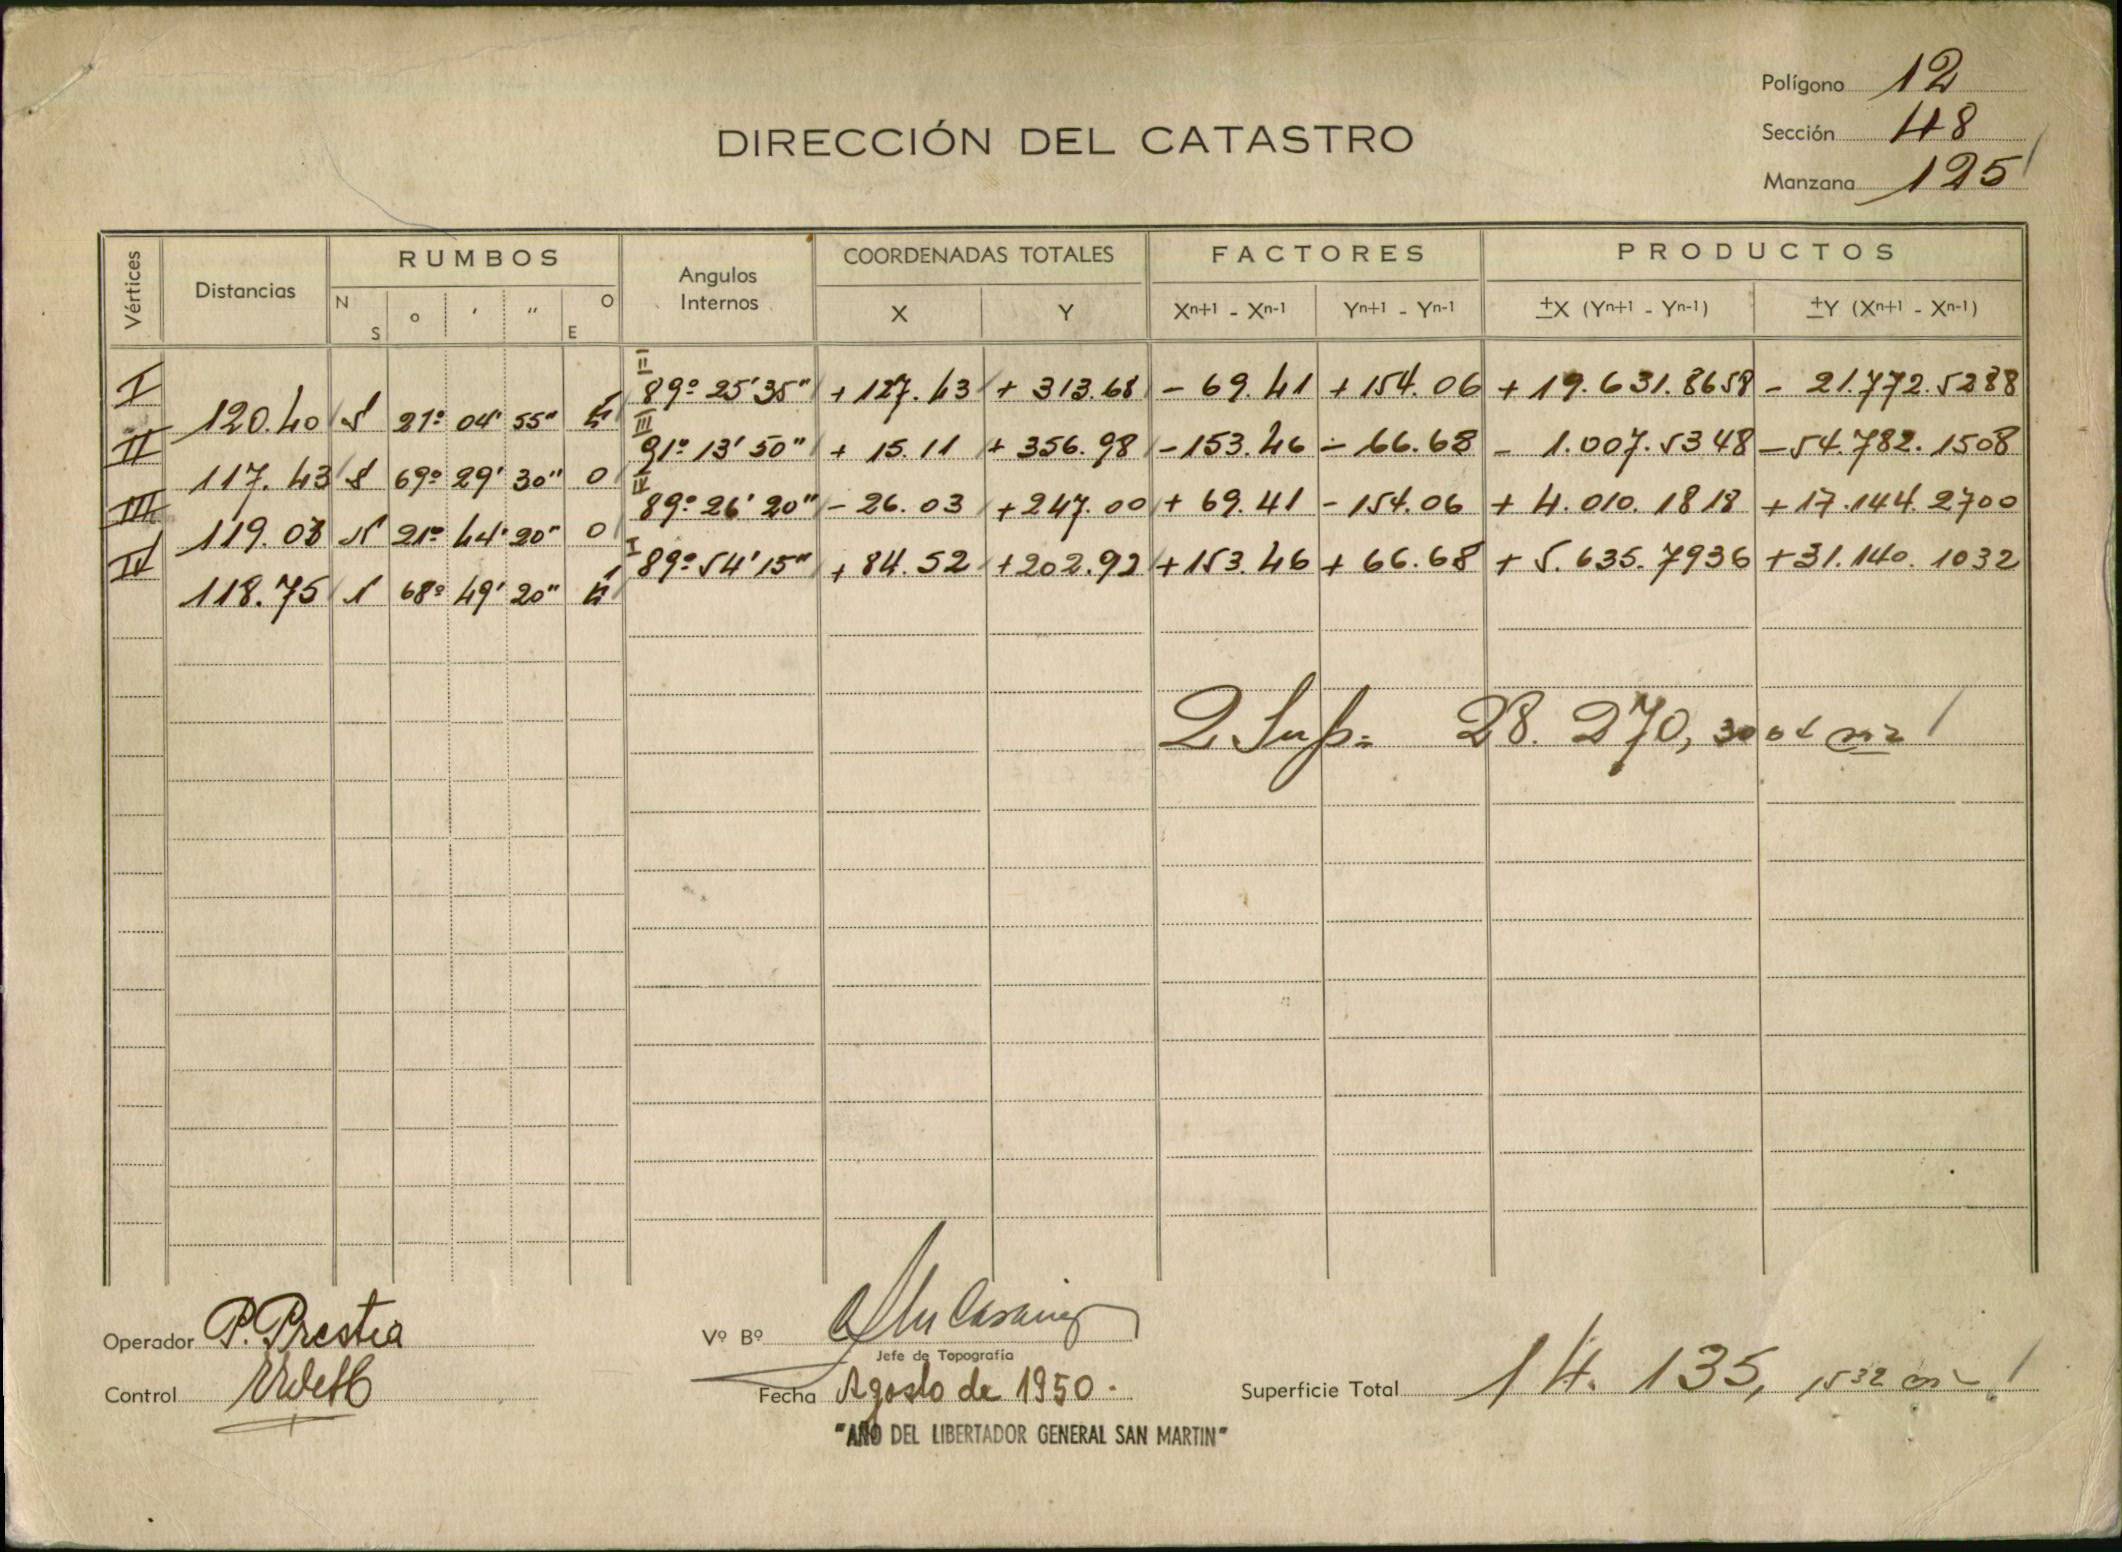 Polígono 12
Sección 48
Manzana 125
DIRECCIÓN DEL CATASTRO
Vértices Distancias RUMBOS Angulos Internos COORDENADAS TOTALES FACTORES PRODUCTOS
N S o ' " O E X Y Xn+1 - Xn-1 Yn+1 - Yn-1 ±X (Yn+1 - Yn-1) ±Y (Xn+1 - Xn-1)
I II 89º 25' 35" + 127.43 + 313.68 - 69.41 + 154.06 + 19.631.8658 - 21.772.5288
120.40 S 21º 04' 55" E
II III 91º 13' 50" + 15.11 + 356.98 - 153.46 - 66.68 - 1.007.5348 - 54.782.1508
117.43 S 69º 29' 30" O
III IV 89º 26' 20" - 26.03 + 247.00 + 69.41 - 154.06 + 4.010.1818 + 17.144.2700
119.03 N 21º 44' 20" O
IV I 89º 54' 15" + 84.52 + 202.92 + 153.46 + 66.68 + 5.635.7936 + 31.140.1032
118.75 N 68º 49' 20" E
2 Sup= 28.270,3064 m2
Operador P. Prestia
Control
Vº Bº
Jefe de Topografía
Fecha Agosto de 1950.
Superficie Total 14.135,1532 m2
"AÑO DEL LIBERTADOR GENERAL SAN MARTIN"